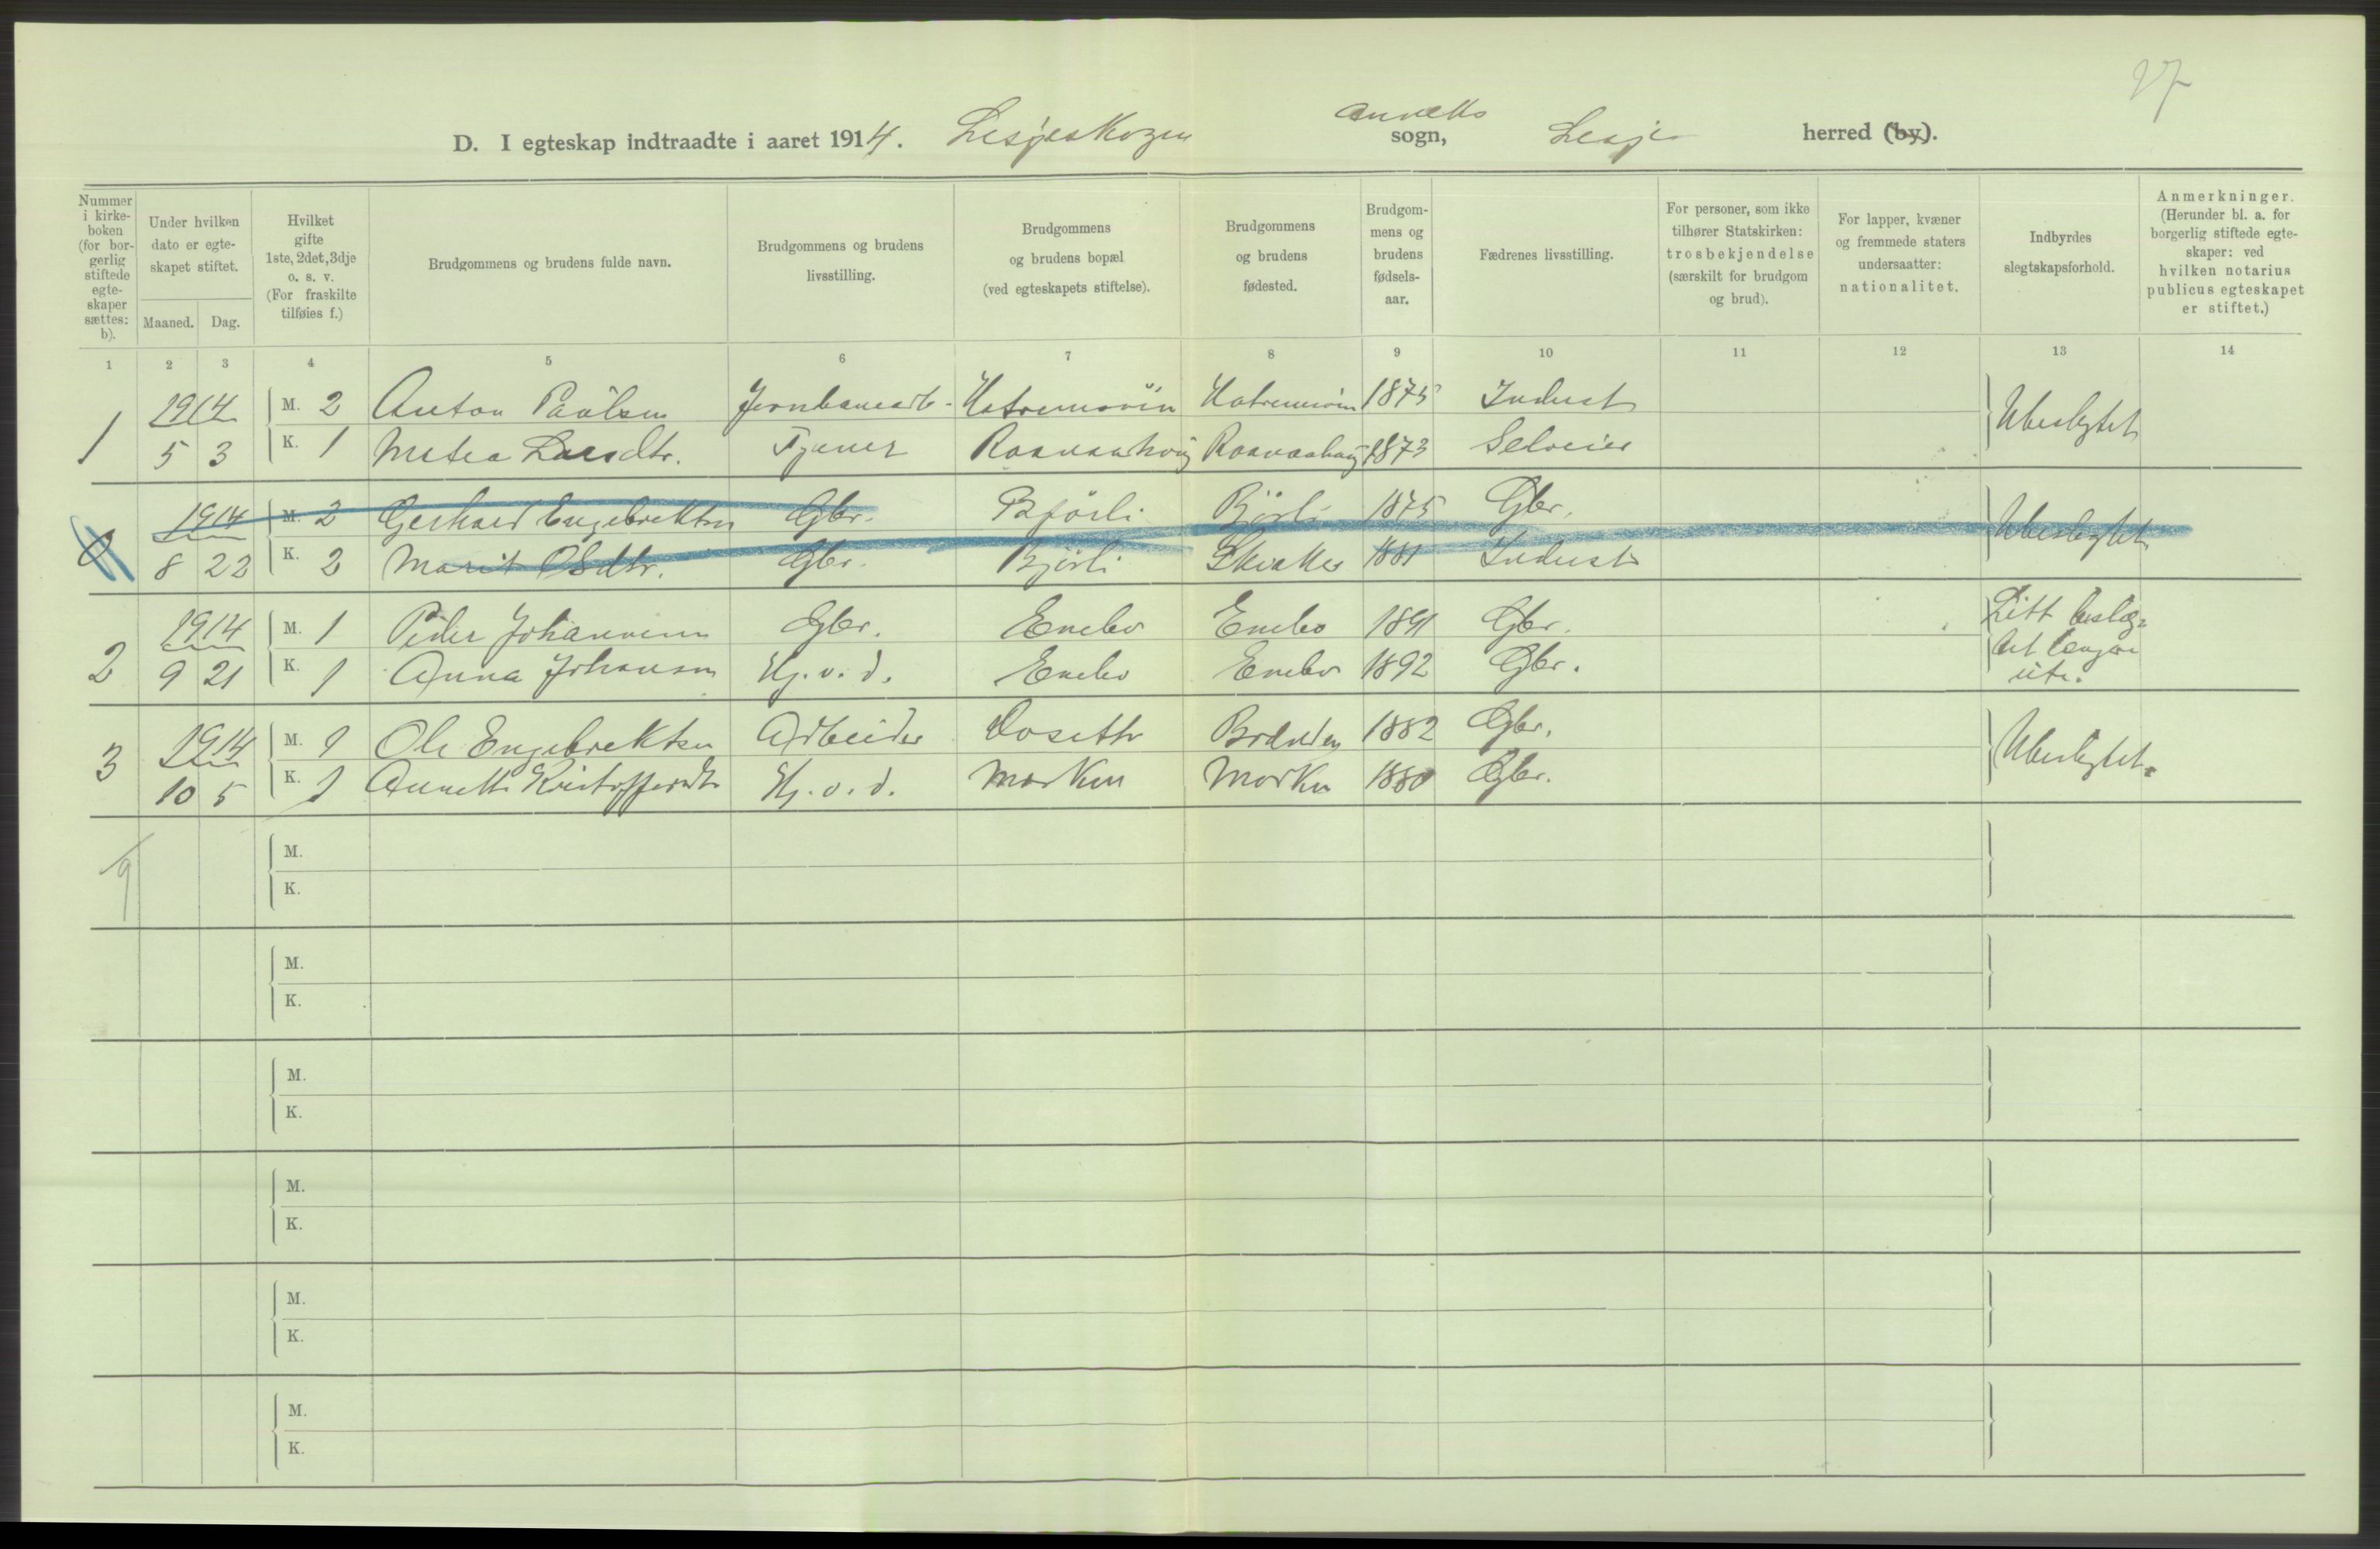 27
D. I egteskap indtraadte i aaret 1914. Lesjeskogen annekssogn, Lesje herred (by).
Nummer i kirkeboken (for borgerlig stiftede egteskaper sættes: b).
Under hvilken dato er egteskapet stiftet.
Maaned. Dag.
Hvilket gifte 1ste, 2det, 3dje o. s. v. (For fraskilte tilføies f.)
Brudgommens og brudens fulde navn.
Brudgommens og brudens livsstilling.
Brudgommens og brudens bopæl (ved egteskapets stiftelse).
Brudgommens og brudens fødested.
Brudgommens og brudens fødselsaar.
Fædrenes livsstilling.
For personer, som ikke tilhører Statskirken: trosbekjendelse (særskilt for brudgom og brud).
For lapper, kvæner og fremmede staters undersaatter: nationalitet.
Indbyrdes slegtskapsforhold.
Anmerkninger. (Herunder bl. a. for borgerlig stiftede egteskaper: ved hvilken notarius publicus egteskapet er stiftet.)
1 2 3 4 5 6 7 8 9 10 11 12 13 14
1 1914 M. 2 Anton Paulsen Jernbanearb. 1875 Inderst Ubeslegtet
5 3 K. 1 Metea Larsdtr. Tjener 1873 Selveier
1914 M. 2 Gerhard Engebrektsen Gbr. Bjørli Bjørli 1875 Gbr. Ubeslegtet
8 22 K. 2 Marit Olsdtr. Gbr. Bjørli 1881 Inderst
2 1914 M. 1 Peder Johannesen Gbr. Enebo Enebo 1891 Gbr. Litt beslæg=
9 21 K. 1 Anna Johansen Hj. v. d. Enebo Enebo 1892 Gbr. tet længere
ute.
3 1914 M. 1 Ole Engebrektsen Arbeider Doseth 1882 Gbr. Ubeslegtet.
10 5 K. 1 Annette Kristoffersdtr Hj. v. d. Morken Morken 1880 Gbr.
M.
K.
M.
K.
M.
K.
M.
K.
M.
K.
M.
K.